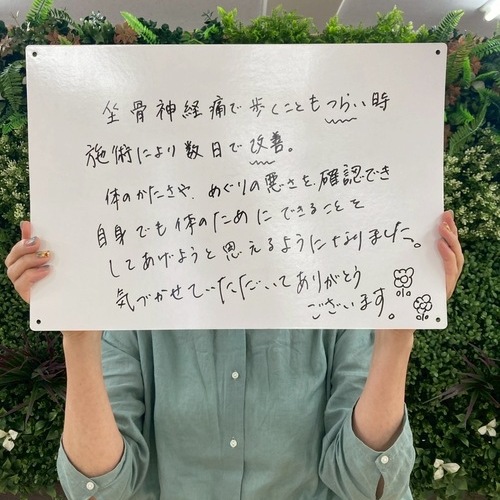 坐骨神経痛で歩くこともつらい時
施術により数日で改善。
体のかたさや、めぐりの悪さを確認でき
自身でも体のためにできることを
してあげようと思えるようになりました。
気づかせていただいてありがとう
ございます。